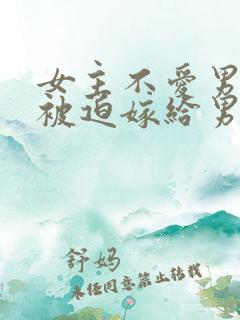 女主不愛男
被迫嫁給男
舒妈
未经同意禁止转载